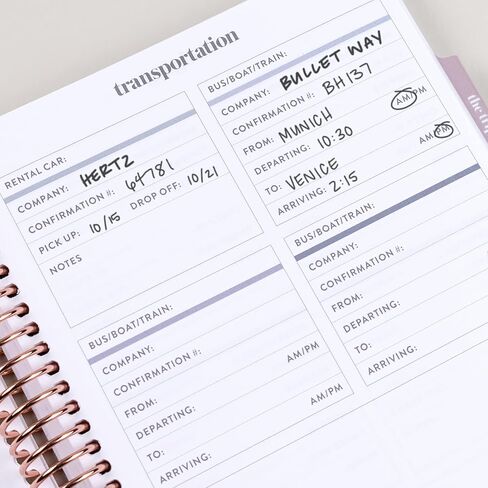 transportation
RENTAL CAR:
COMPANY: HERTZ
CONFIRMATION #: 64781
PICK UP: 10/15 DROP OFF: 10/21
NOTES
BUS/BOAT/TRAIN:
COMPANY: BULLET WAY
CONFIRMATION #: BH137
FROM: MUNICH AM/PM
DEPARTING: 10:30
TO: VENICE AM/PM
ARRIVING: 2:15
BUS/BOAT/TRAIN:
COMPANY:
CONFIRMATION #:
FROM: AM/PM
DEPARTING:
TO: AM/PM
ARRIVING:
BUS/BOAT/TRAIN:
COMPANY:
CONFIRMATION #:
FROM:
DEPARTING:
TO:
ARRIVING:
the